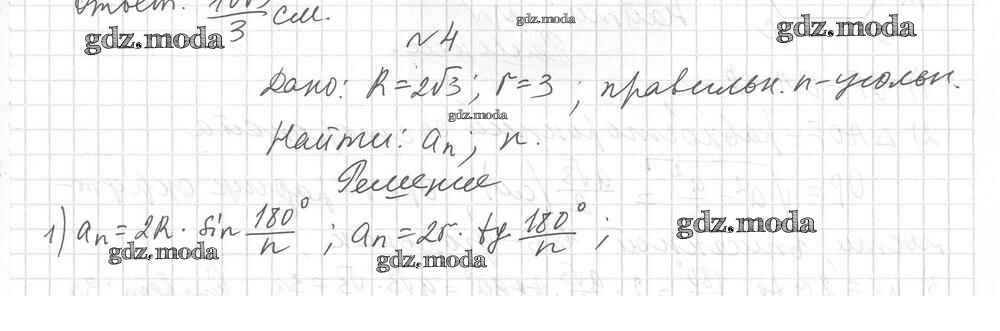 Ответ: 10√3/3 см.
gdz.moda gdz.moda gdz.moda
№4
Дано: R=2√3; r=3; правильн. n-угольн.
gdz.moda
Найти: aₙ; n.
Решение
1) aₙ = 2R · sin 180°/n ; aₙ = 2r · tg 180°/n ;
gdz.moda gdz.moda gdz.moda